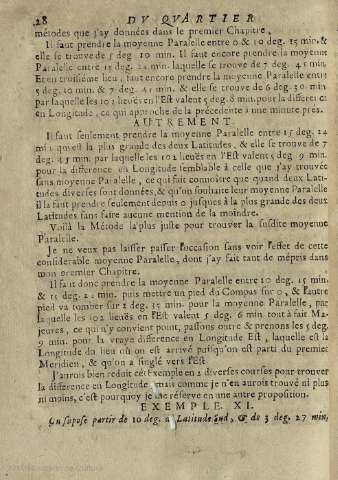 28 DV QVARTIER
métodes que j'ay données dans le premier Chapitre.
Il faut prendre la moyenne Paralelle entre 0 & 10 deg. 15 min. &
elle se trouve de 5 deg. 10 min. Il faut encore prendre la moyenne
Paralelle entre 15 deg. 24 min. laquelle se trouve de 7 deg. 45 min.
Et en troisiéme lieu, faut encore prendre la moyenne Paralelle entre
5 deg. 10 min. & 7 deg. 45 min. & elle se trouve de 6 deg. 30 min
par laquelles les 102 lieuës en l'Est valent 5 deg. 8 min. pour la differéce
en Longitude, ce qui approche de la précedente à une minute prés.
AUTREMENT.
Il faut seulement prendre la moyenne Paralelle entre 15 deg. 24
min qui est la plus grande des deux Latitudes, & elle se trouve de 7
deg. 45 min. par laquelle les 102 lieuës en l'Est valent 5 deg. 9 min.
pour la difference en Longitude semblable à celle que j'ay trouvée
sans moyenne Paralelle, ce qui fait connoître que quand deux Lati-
tudes diverses sont données, & qu'on souhaite leur moyenne Paralelle
il la faut prendre seulement depuis 0 jusques à la plus grande des deux
Latitudes sans faire aucune mention de la moindre.
Voilà la Métode la plus juste pour trouver la susdite moyenne
Paralelle.
Je ne veux pas laisser passer l'occasion sans voir l'effet de cette
considerable moyenne Paralelle, dont j'ay fait tant de mépris dans
mon premier Chapitre.
Il faut donc prendre la moyenne Paralelle entre 10 deg. 15 min.
& 15 deg. min. puis mettre un pied du Compas sur 0, & l'autre
pied va tomber sur 2 deg. 15 min. pour la moyenne Paralelle, par
laquelle les 102 lieuës en l'Est valent 5 deg. 6 min tout à fait Ma-
jeures, ce qui n'y convient point, passons outre & prenons les 5 deg.
9 min. pour la vraye difference en Longitude Est, laquelle est la
Longitude du lieu où on est arrivé puisqu'on est parti du premier
Meridien, & qu'on a singlé vers l'Est
J'aurois bien reduit cét Exemple en 2 diverses courses pour trouver
la difference en Longitude, mais comme je n'en aurois trouvé ni plus
ni moins, c'est pourquoy je me réserve en une autre proposition.
EXEMPLE XI.
On supose partir de 10 deg. de Latitude Sud, & de 3 deg. 27 min,